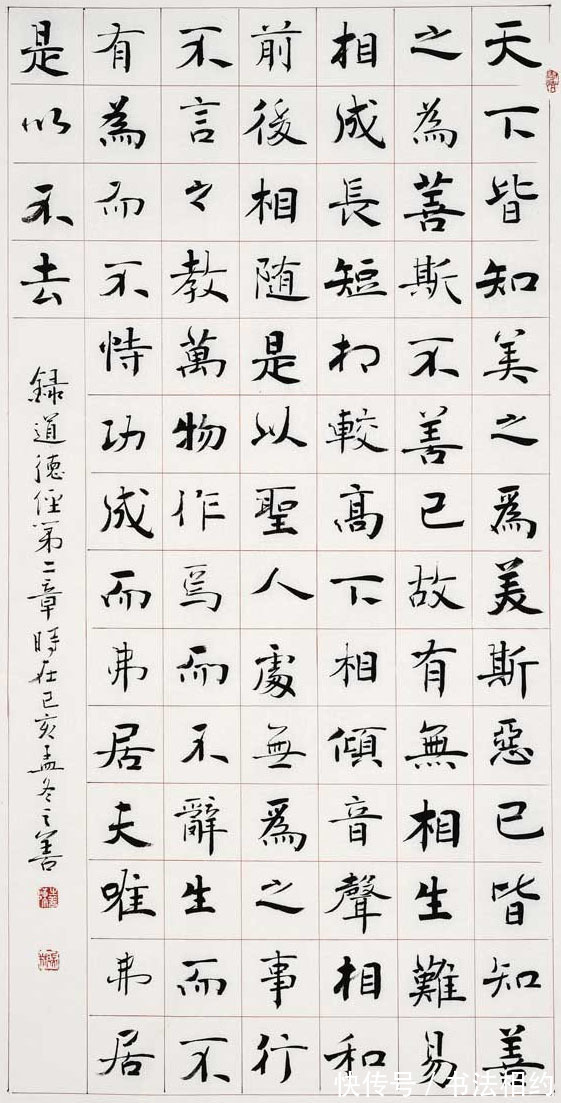 天下皆知美之為美斯惡已皆知善
之為善斯不善已故有無相生難易
相成長短相較高下相傾音聲相和
前後相随是以聖人處無為之事行
不言之教萬物作焉而不辭生而不
有為而不恃功成而弗居夫唯弗居
是以不去
録道德經第二章時在己亥孟冬之善
快传号/书法相约